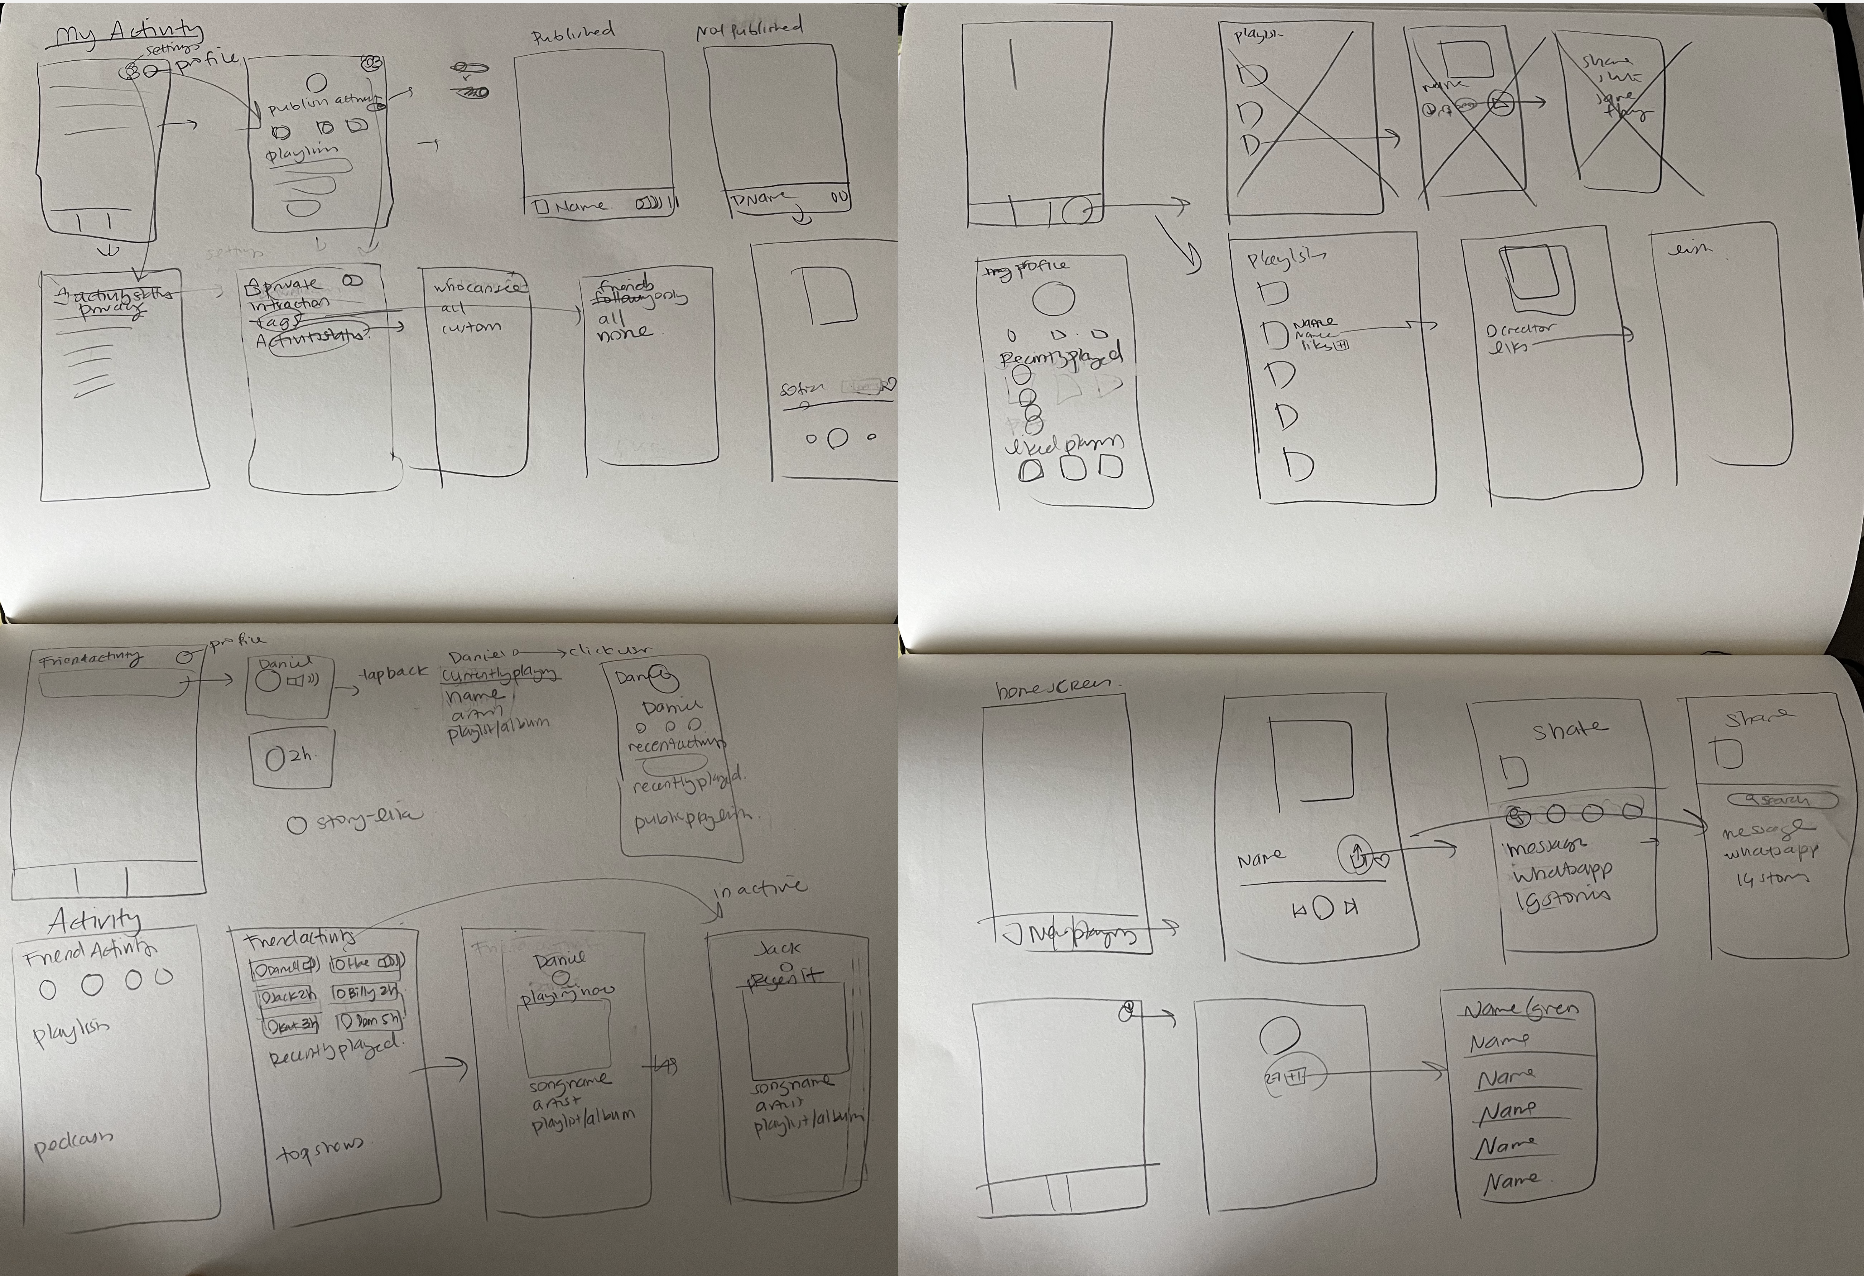 My Activity
settings
profile
publish activity
playlists
Published
Not Published
Name
Name
activity status
privacy
private
intraction
tags
Activitystatus
who can see
all
custom
friends
only
all
none
playlist
name
share
same
my profile
Recently played
liked playlists
playlists
Name
Name
likes
creator
likes
Friend activity
profile
Daniel
2h.
tap back
Daniel
click user
currently playing
name
artist
playlist/album
Daniel
recent activity
recently played.
public playlists.
story-like
Activity
Friend Activity
playlists
podcasts
Friend activity
Daniel
Jack 2h
Billy 2h
Kat 3h
Sam 5h
Recently played.
top shows
Daniel
playing now
songname
artist
playlist/album
inactive
Jack
songname
artist
playlist/album
homescreen.
Now playing
Name
Share
message
whatsapp
IGstories
Share
search
message
whatsapp
IG stories
27
Name (green
Name
Name
Name
Name
Name